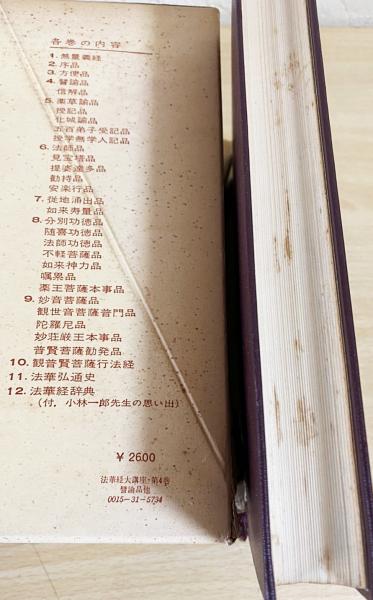 各巻の内容
1. 無量義経
2. 序品
3. 方便品
4. 譬諭品
信解品
5. 薬草諭品
授記品
化城諭品
五百弟子受記品
授学無学人記品
6. 法師品
見宝塔品
提婆達多品
勧持品
安楽行品
7. 従地涌出品
如来寿量品
8. 分別功徳品
随喜功徳品
法師功徳品
不軽菩薩品
如来神力品
嘱累品
薬王菩薩本事品
9. 妙音菩薩品
観世音菩薩普門品
陀羅尼品
妙荘厳王本事品
普賢菩薩勧発品
10. 観普賢菩薩行法経
11. 法華弘通史
12. 法華経辞典
(付，小林一郎先生の思い出)
¥ 2600
法華経大講座・第4巻
譬諭品他
0015-31-5734